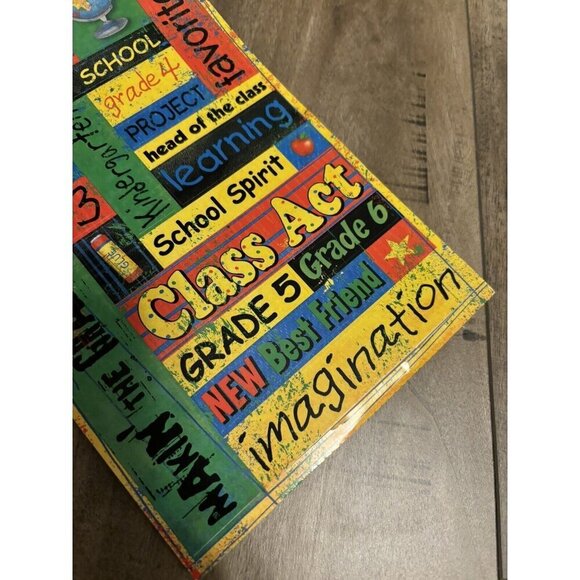 favorite
SCHOOL
grade 4
PROJECT
head of the class
learning
Kindergarten
3
School Spirit
GLUE
Class Act
GRADE 5 Grade 6
NEW Best Friend
imagination
MAKIN' THE GRA